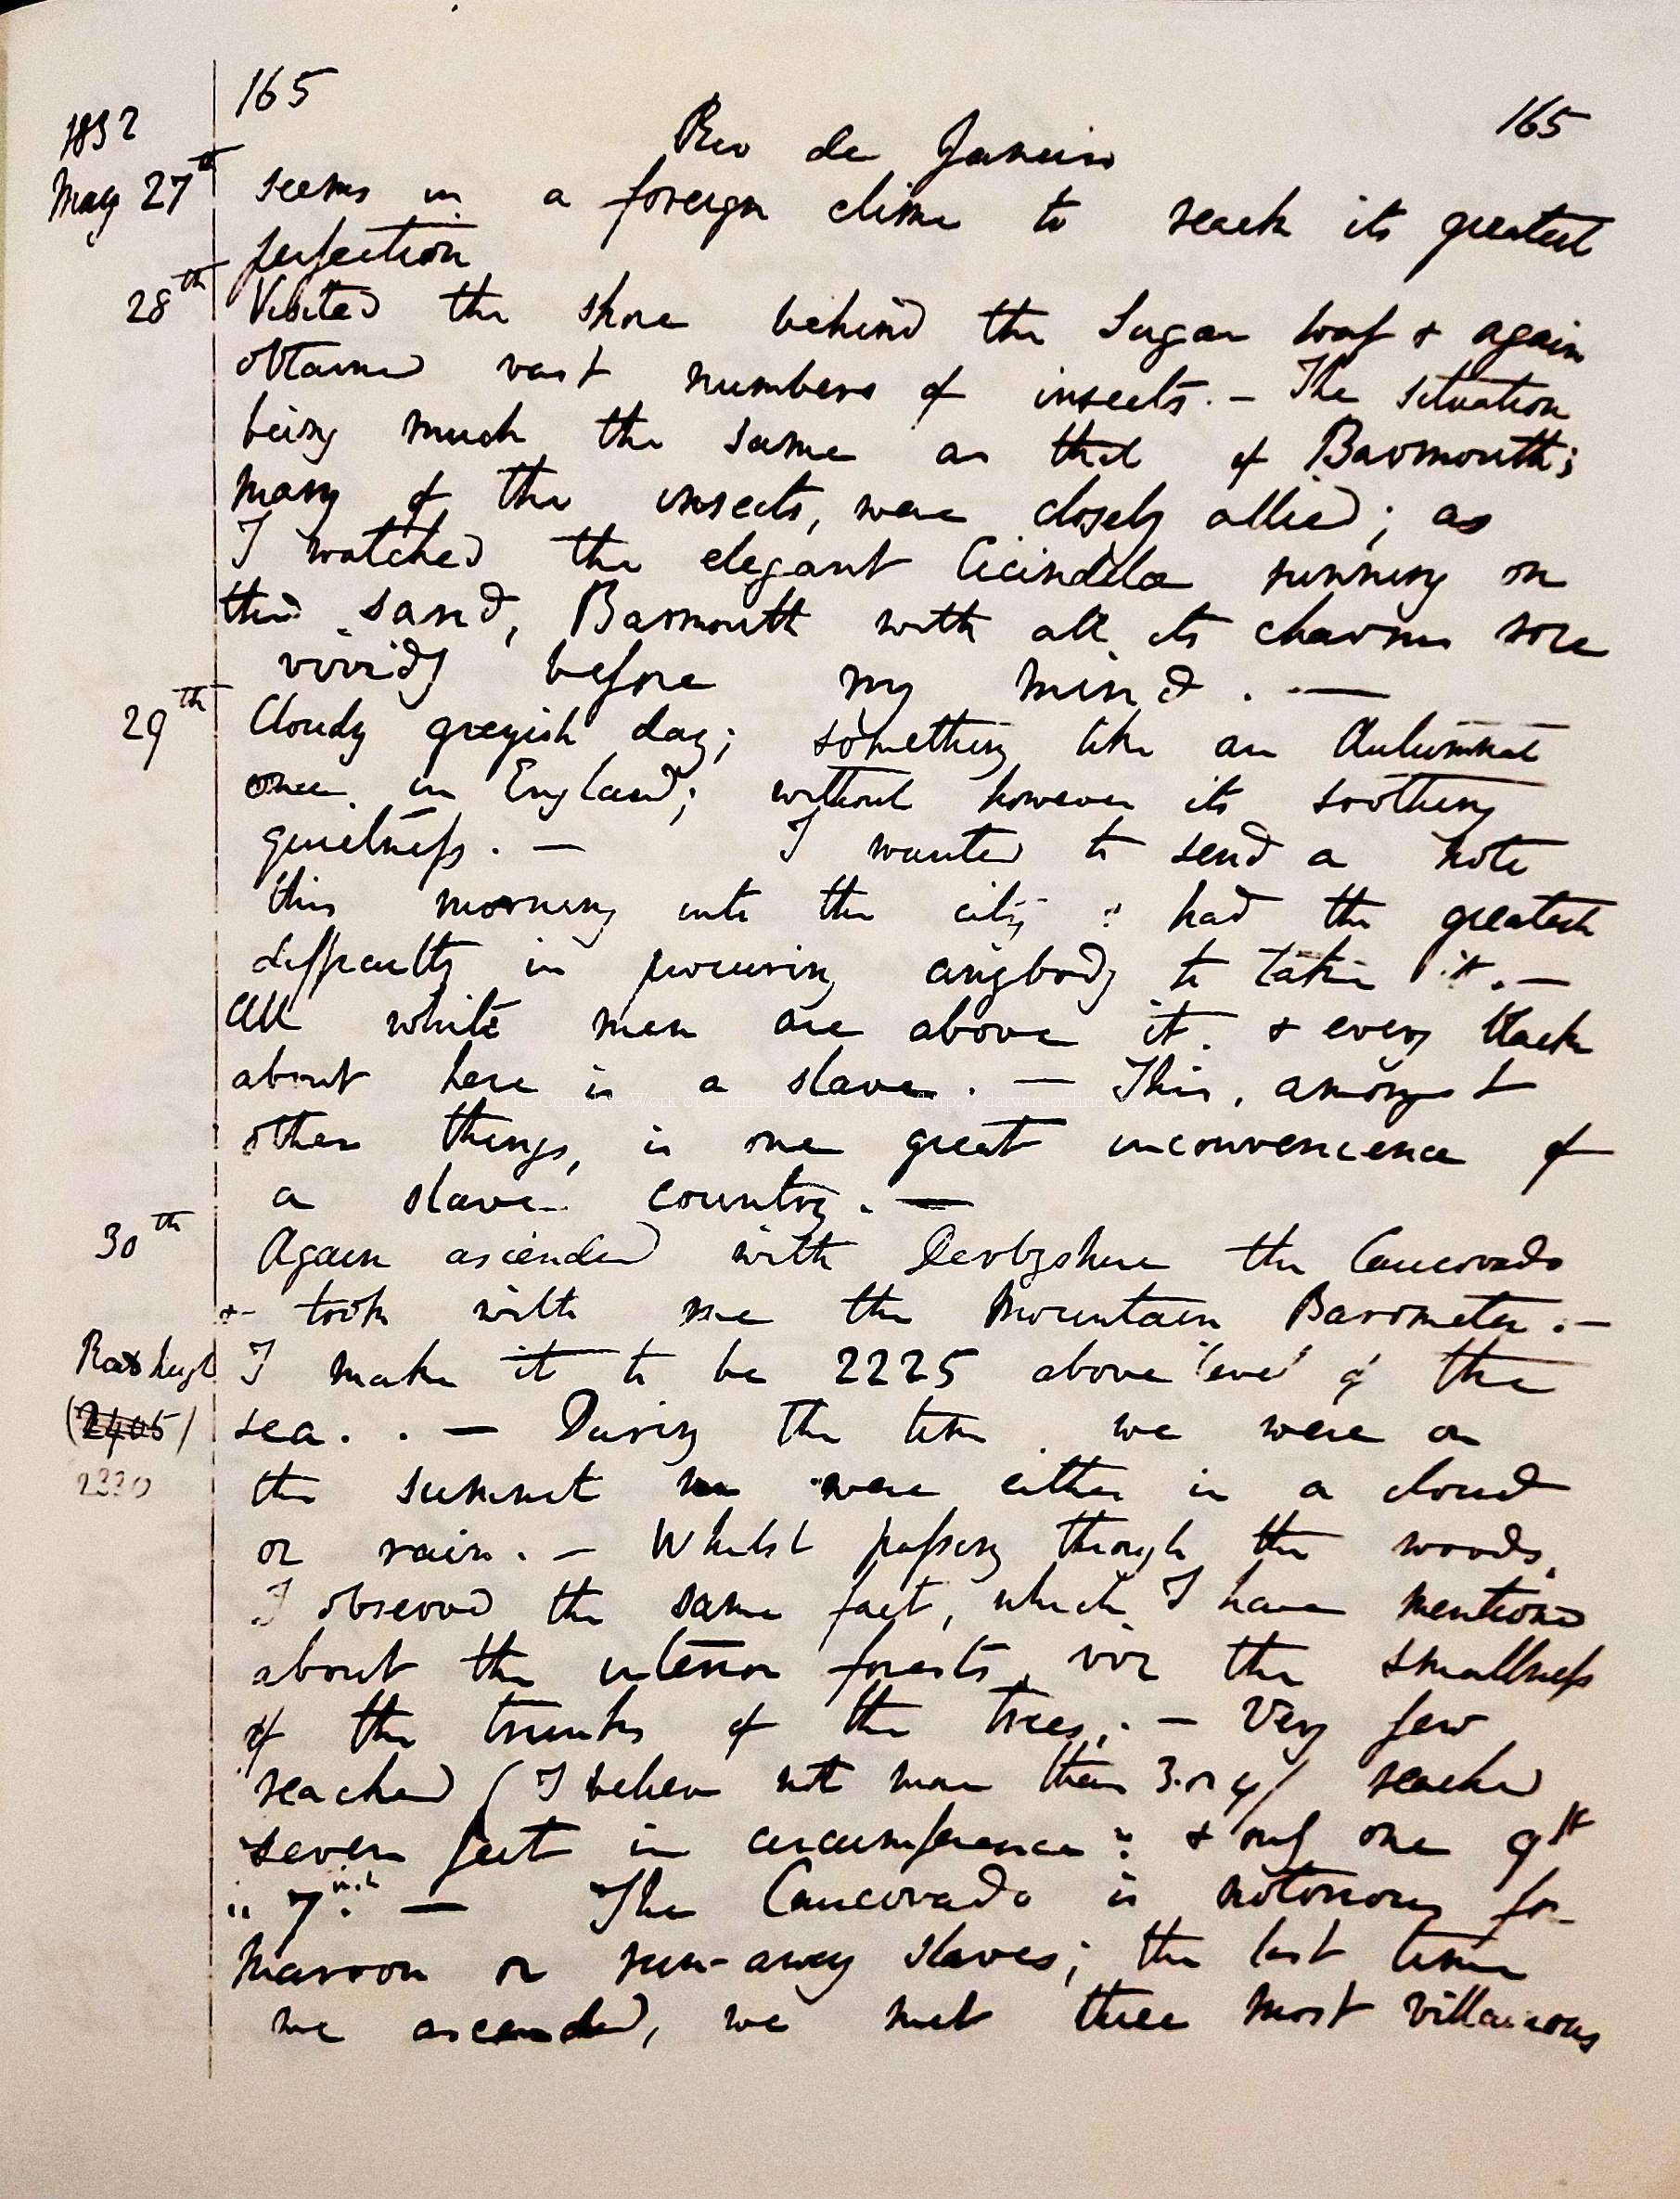 165
1832
Rio de Janeiro
165
May 27th
seems in a foreign clime to reach its greatest
perfection
28th
Visited the shore behind the Sugar loaf & again
obtained vast numbers of insects. — The situation
being much the same as that of Barmouth;
many of the insects, were closely allied; as
I watched the elegant Cicindela running on
the sand, Barmouth with all its charms rose
vividly before my mind. —
29th
Cloudy greyish day; something like an Autumnal
one in England; without however its soothing
quietness. — I wanted to send a note
this morning into the city & had the greatest
difficulty in procuring anybody to take it. —
All white men are above it. & every black
about here is a slave. — This, amongst
other things, is one great inconvenience of
a slave country. —
30th
Again ascended with Derbyshire the Caucovado
& took with me the Mountain Barometer. —
I make it to be 2225 above level of the
(2405)
sea. . — During the time we were on
2330
the summit we were either in a cloud
or rain. — Whilst passing through the woods,
I observed the same fact, which I have mentioned
about the interior forests, viz the smallness
of the trunks of the trees. — Very few
reached (I believe not more than 3 or 4) reached
seven feet in circumference: & only one 9ft
" 7. inch — The Caucovado is notorious for
Maroon or run-away slaves; the last time
we ascended, we met three most villainous